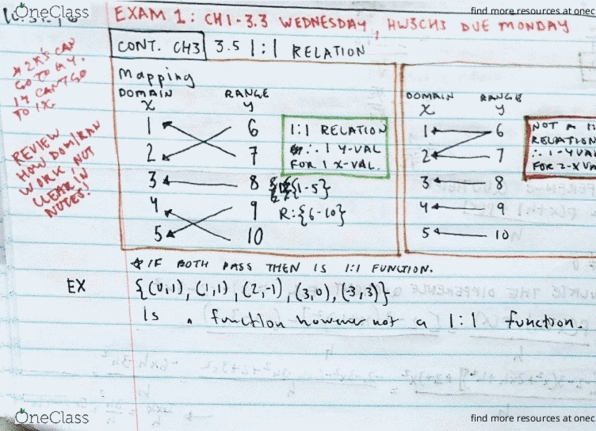 find more resources at onec
EXAM 1: CH1-3.3 WEDNESDAY, HW3CH3 DUE MONDAY
CONT. CH3 3.5 1:1 RELATION
* 2X'S CAN
GO TO 1Y.
1Y CAN'T GO
TO 1X
REVIEW
HOW DOM/RAN
WORK NOT
CLEAR IN
NOTES!
Mapping
DOMAIN RANGE
X Y
1 6
2 7
3 8
4 9
5 10
1:1 RELATION
∴ 1 Y-VAL
FOR 1 X-VAL.
{1-5}
R:{6-10}
DOMAIN RANGE
X Y
1 6
2 7
3 8
4 9
5 10
NOT A
RELATION
∴ 1-YVA
FOR 2-XVA
* IF BOTH PASS THEN IS 1:1 FUNCTION.
EX {(0,1), (1,1), (2,-1), (3,0), (3,3)}
Is a function however not a 1:1 function.
OneClass
OneClass
find more resources at onec